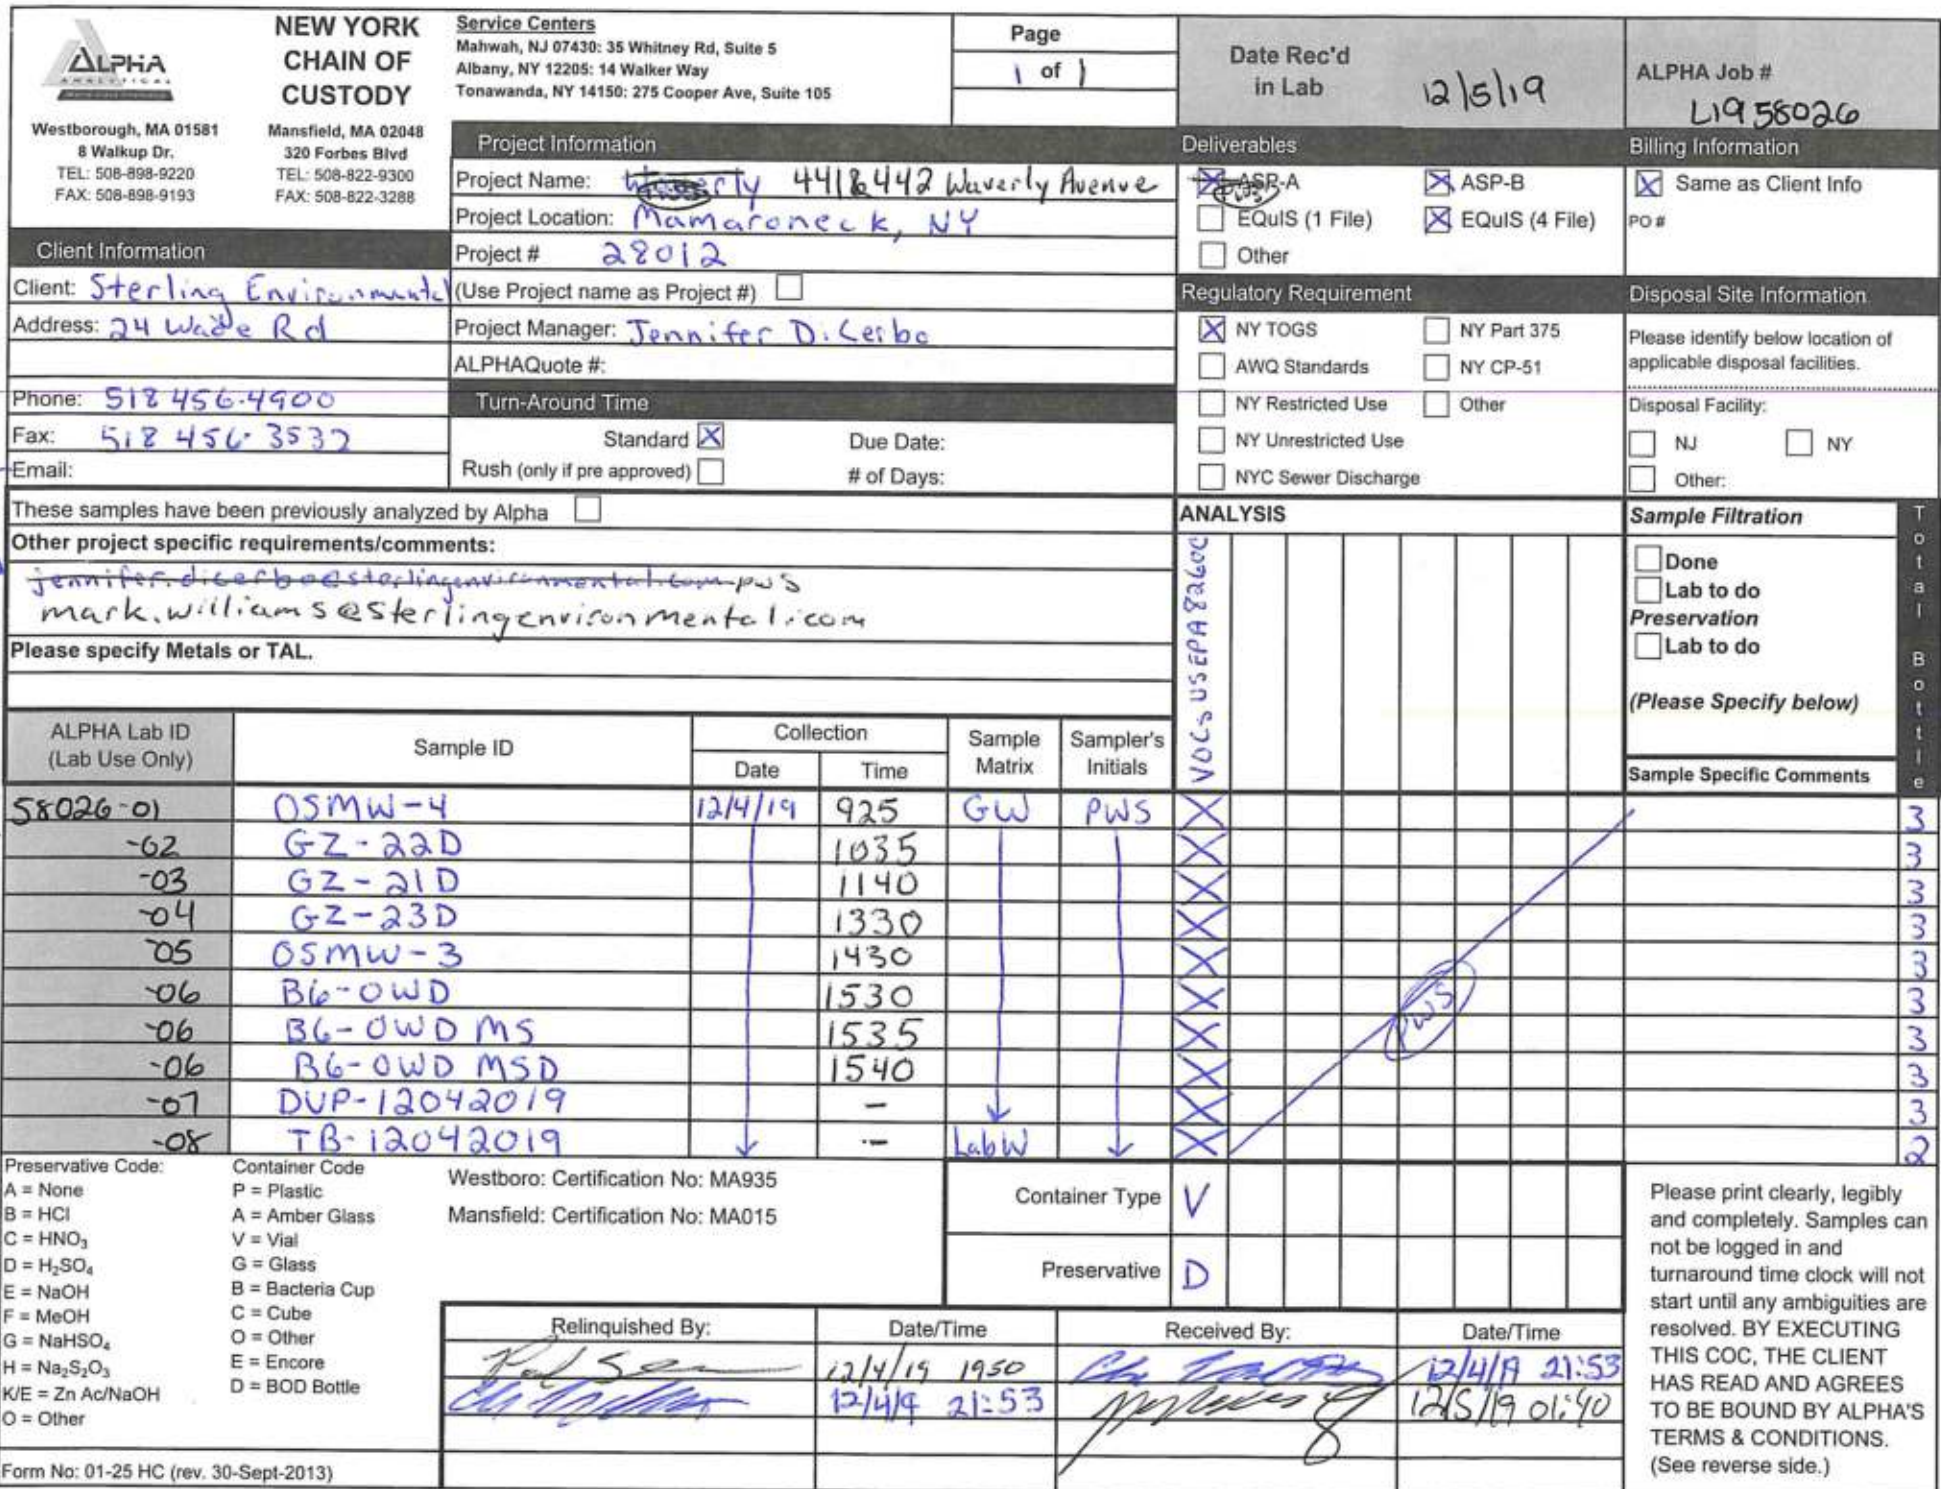 ALPHA
ANALYTICAL
NEW YORK
CHAIN OF
CUSTODY
Westborough, MA 01581
8 Walkup Dr.
TEL: 508-898-9220
FAX: 508-898-9193
Mansfield, MA 02048
320 Forbes Blvd
TEL: 508-822-9300
FAX: 508-822-3288
Service Centers
Mahwah, NJ 07430: 35 Whitney Rd, Suite 5
Albany, NY 12205: 14 Walker Way
Tonawanda, NY 14150: 275 Cooper Ave, Suite 105
Page
1 of 1
Date Rec'd
in Lab
12/5/19
ALPHA Job #
L1958026
Project Information
Project Name: Waverly 441&442 Waverly Avenue
Project Location: Mamaroneck, NY
Project # 28012
(Use Project name as Project #)
Project Manager: Jennifer DiCerbo
ALPHAQuote #:
Turn-Around Time
Standard X Due Date:
Rush (only if pre approved) # of Days:
Client Information
Client: Sterling Environmental
Address: 24 Wade Rd
Phone: 518 456-4900
Fax: 518 456-3532
Email:
Deliverables
X ASP-A X ASP-B
PWS
EQuIS (1 File) X EQuIS (4 File)
Other
Regulatory Requirement
X NY TOGS NY Part 375
AWQ Standards NY CP-51
NY Restricted Use Other
NY Unrestricted Use
NYC Sewer Discharge
Billing Information
X Same as Client Info
PO #
Disposal Site Information
Please identify below location of
applicable disposal facilities.
Disposal Facility:
NJ NY
Other:
These samples have been previously analyzed by Alpha
Other project specific requirements/comments:
jennifer.dicerbo@sterlingenvironmental.com pws
mark.williams@sterlingenvironmental.com
Please specify Metals or TAL.
ANALYSIS
VOCs USEPA 8260C
Sample Filtration
Done
Lab to do
Preservation
Lab to do
(Please Specify below)
Sample Specific Comments
Total Bottle
ALPHA Lab ID
(Lab Use Only)
Sample ID
Collection
Date Time
Sample
Matrix
Sampler's
Initials
58026-01 OSMW-4 12/4/19 925 GW PWS X 3
-02 GZ-22D 1035 X 3
-03 GZ-21D 1140 X 3
-04 GZ-23D 1330 X 3
-05 OSMW-3 1430 X 3
-06 B6-OWD 1530 X 3
-06 B6-OWD MS 1535 X 3
-06 B6-OWD MSD 1540 X 3
-07 DUP-12042019 - X 3
-08 TB-12042019 - LabW X 2
PWS
Preservative Code:
A = None
B = HCl
C = HNO₃
D = H₂SO₄
E = NaOH
F = MeOH
G = NaHSO₄
H = Na₂S₂O₃
K/E = Zn Ac/NaOH
O = Other
Container Code
P = Plastic
A = Amber Glass
V = Vial
G = Glass
B = Bacteria Cup
C = Cube
O = Other
E = Encore
D = BOD Bottle
Westboro: Certification No: MA935
Mansfield: Certification No: MA015
Container Type V
Preservative D
Relinquished By: Date/Time Received By: Date/Time
12/4/19 1950 12/4/19 21:53
12/4/19 21:53 12/5/19 01:40
Please print clearly, legibly
and completely. Samples can
not be logged in and
turnaround time clock will not
start until any ambiguities are
resolved. BY EXECUTING
THIS COC, THE CLIENT
HAS READ AND AGREES
TO BE BOUND BY ALPHA'S
TERMS & CONDITIONS.
(See reverse side.)
Form No: 01-25 HC (rev. 30-Sept-2013)